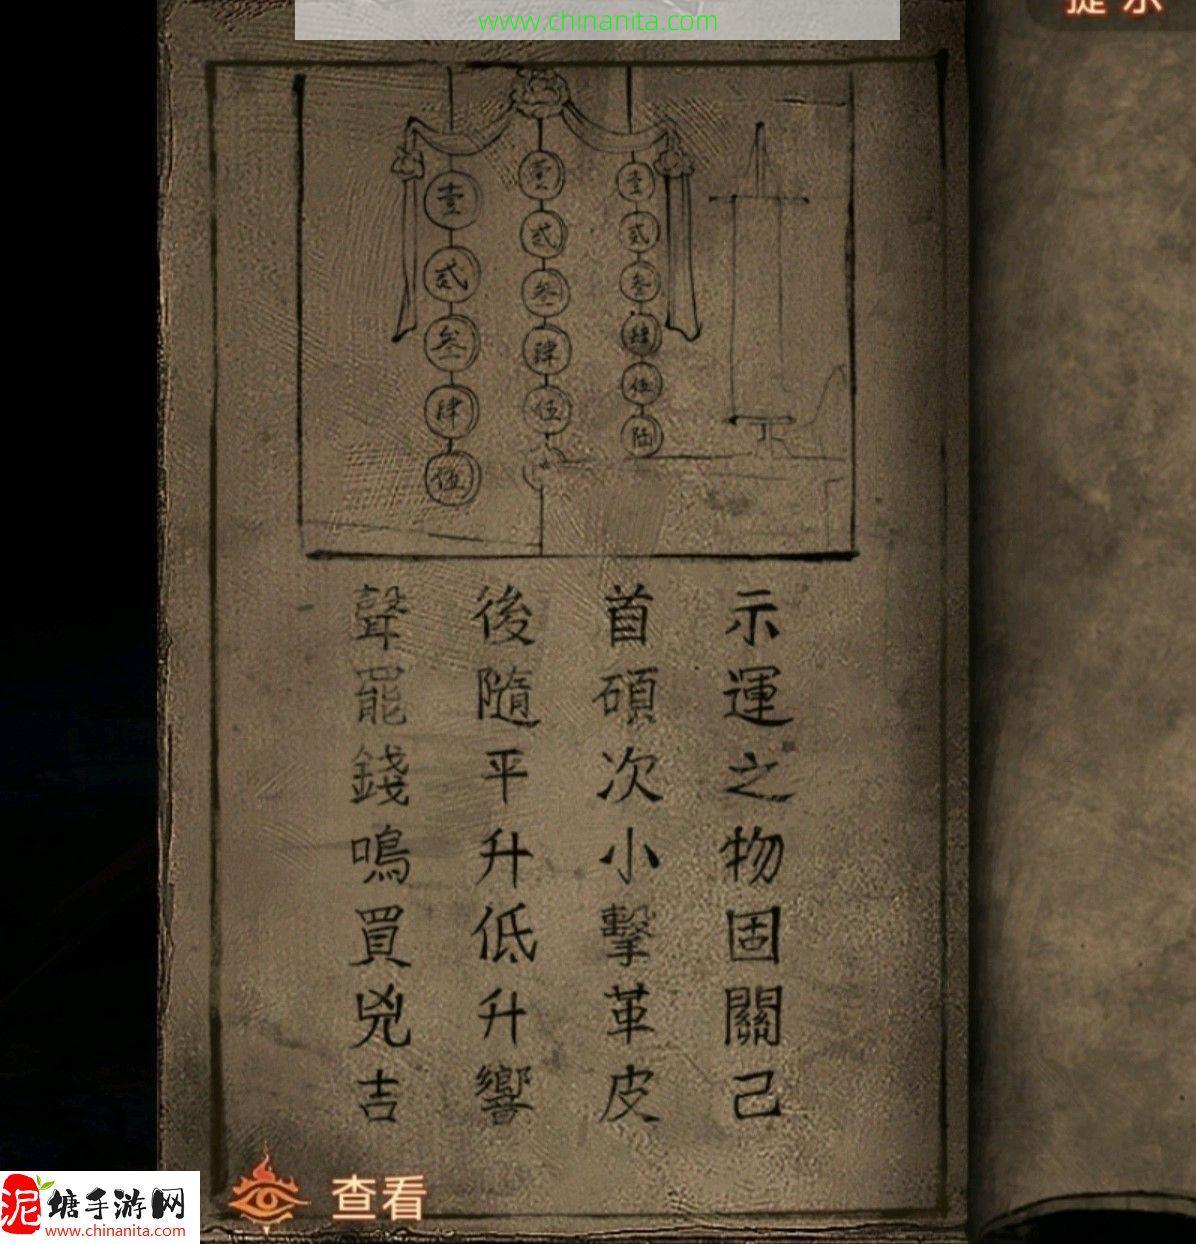 www.chinanita.com
提示
壹貳叁肆伍
壹貳叁肆伍
壹貳叁肆伍陆
示運之物固關己
首碩次小擊革皮
後隨平升低升響
聲罷錢鳴買兇吉
查看
泥塘手游网
www.chinanita.com